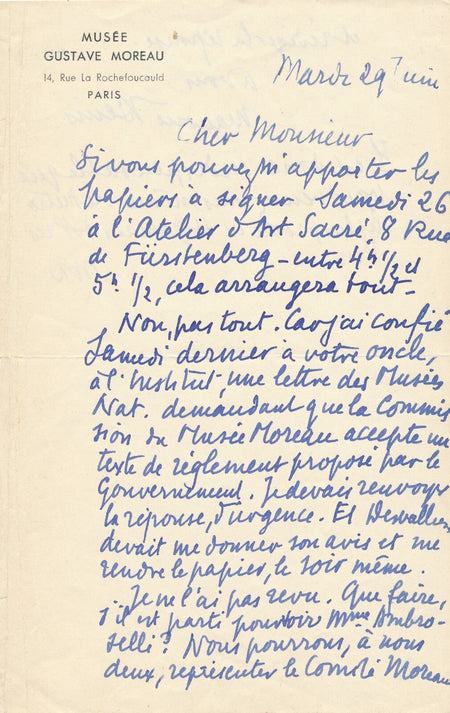 MUSÉE
GUSTAVE MOREAU
14, Rue La Rochefoucauld
PARIS
Mardi 29 Juin
Cher Monsieur
Si vous pouvez m'apporter les
papiers à signer Samedi 26
à l'Atelier d'Art Sacré, 8 Rue
de Fürstenberg - entre 4h 1/2 et
5h 1/2, cela arrangera tout -
Non, pas tout. Car j'ai confié
Samedi dernier à votre oncle,
à l'Institut, une lettre des Musées
Nat. demandant que la Commis
sion du Musée Moreau accepte un
texte de règlement proposé par le
Gouvernement. Je devais renvoyer
la réponse, d'urgence. Et Desvallières
devait me donner son avis et me
rendre le papier, le soir même.
Je ne l'ai pas revu. Que faire,
s'il est parti pour voir Mme Ambro-
selli? Nous pourrons, à nous
deux, représenter le Comité Moreau